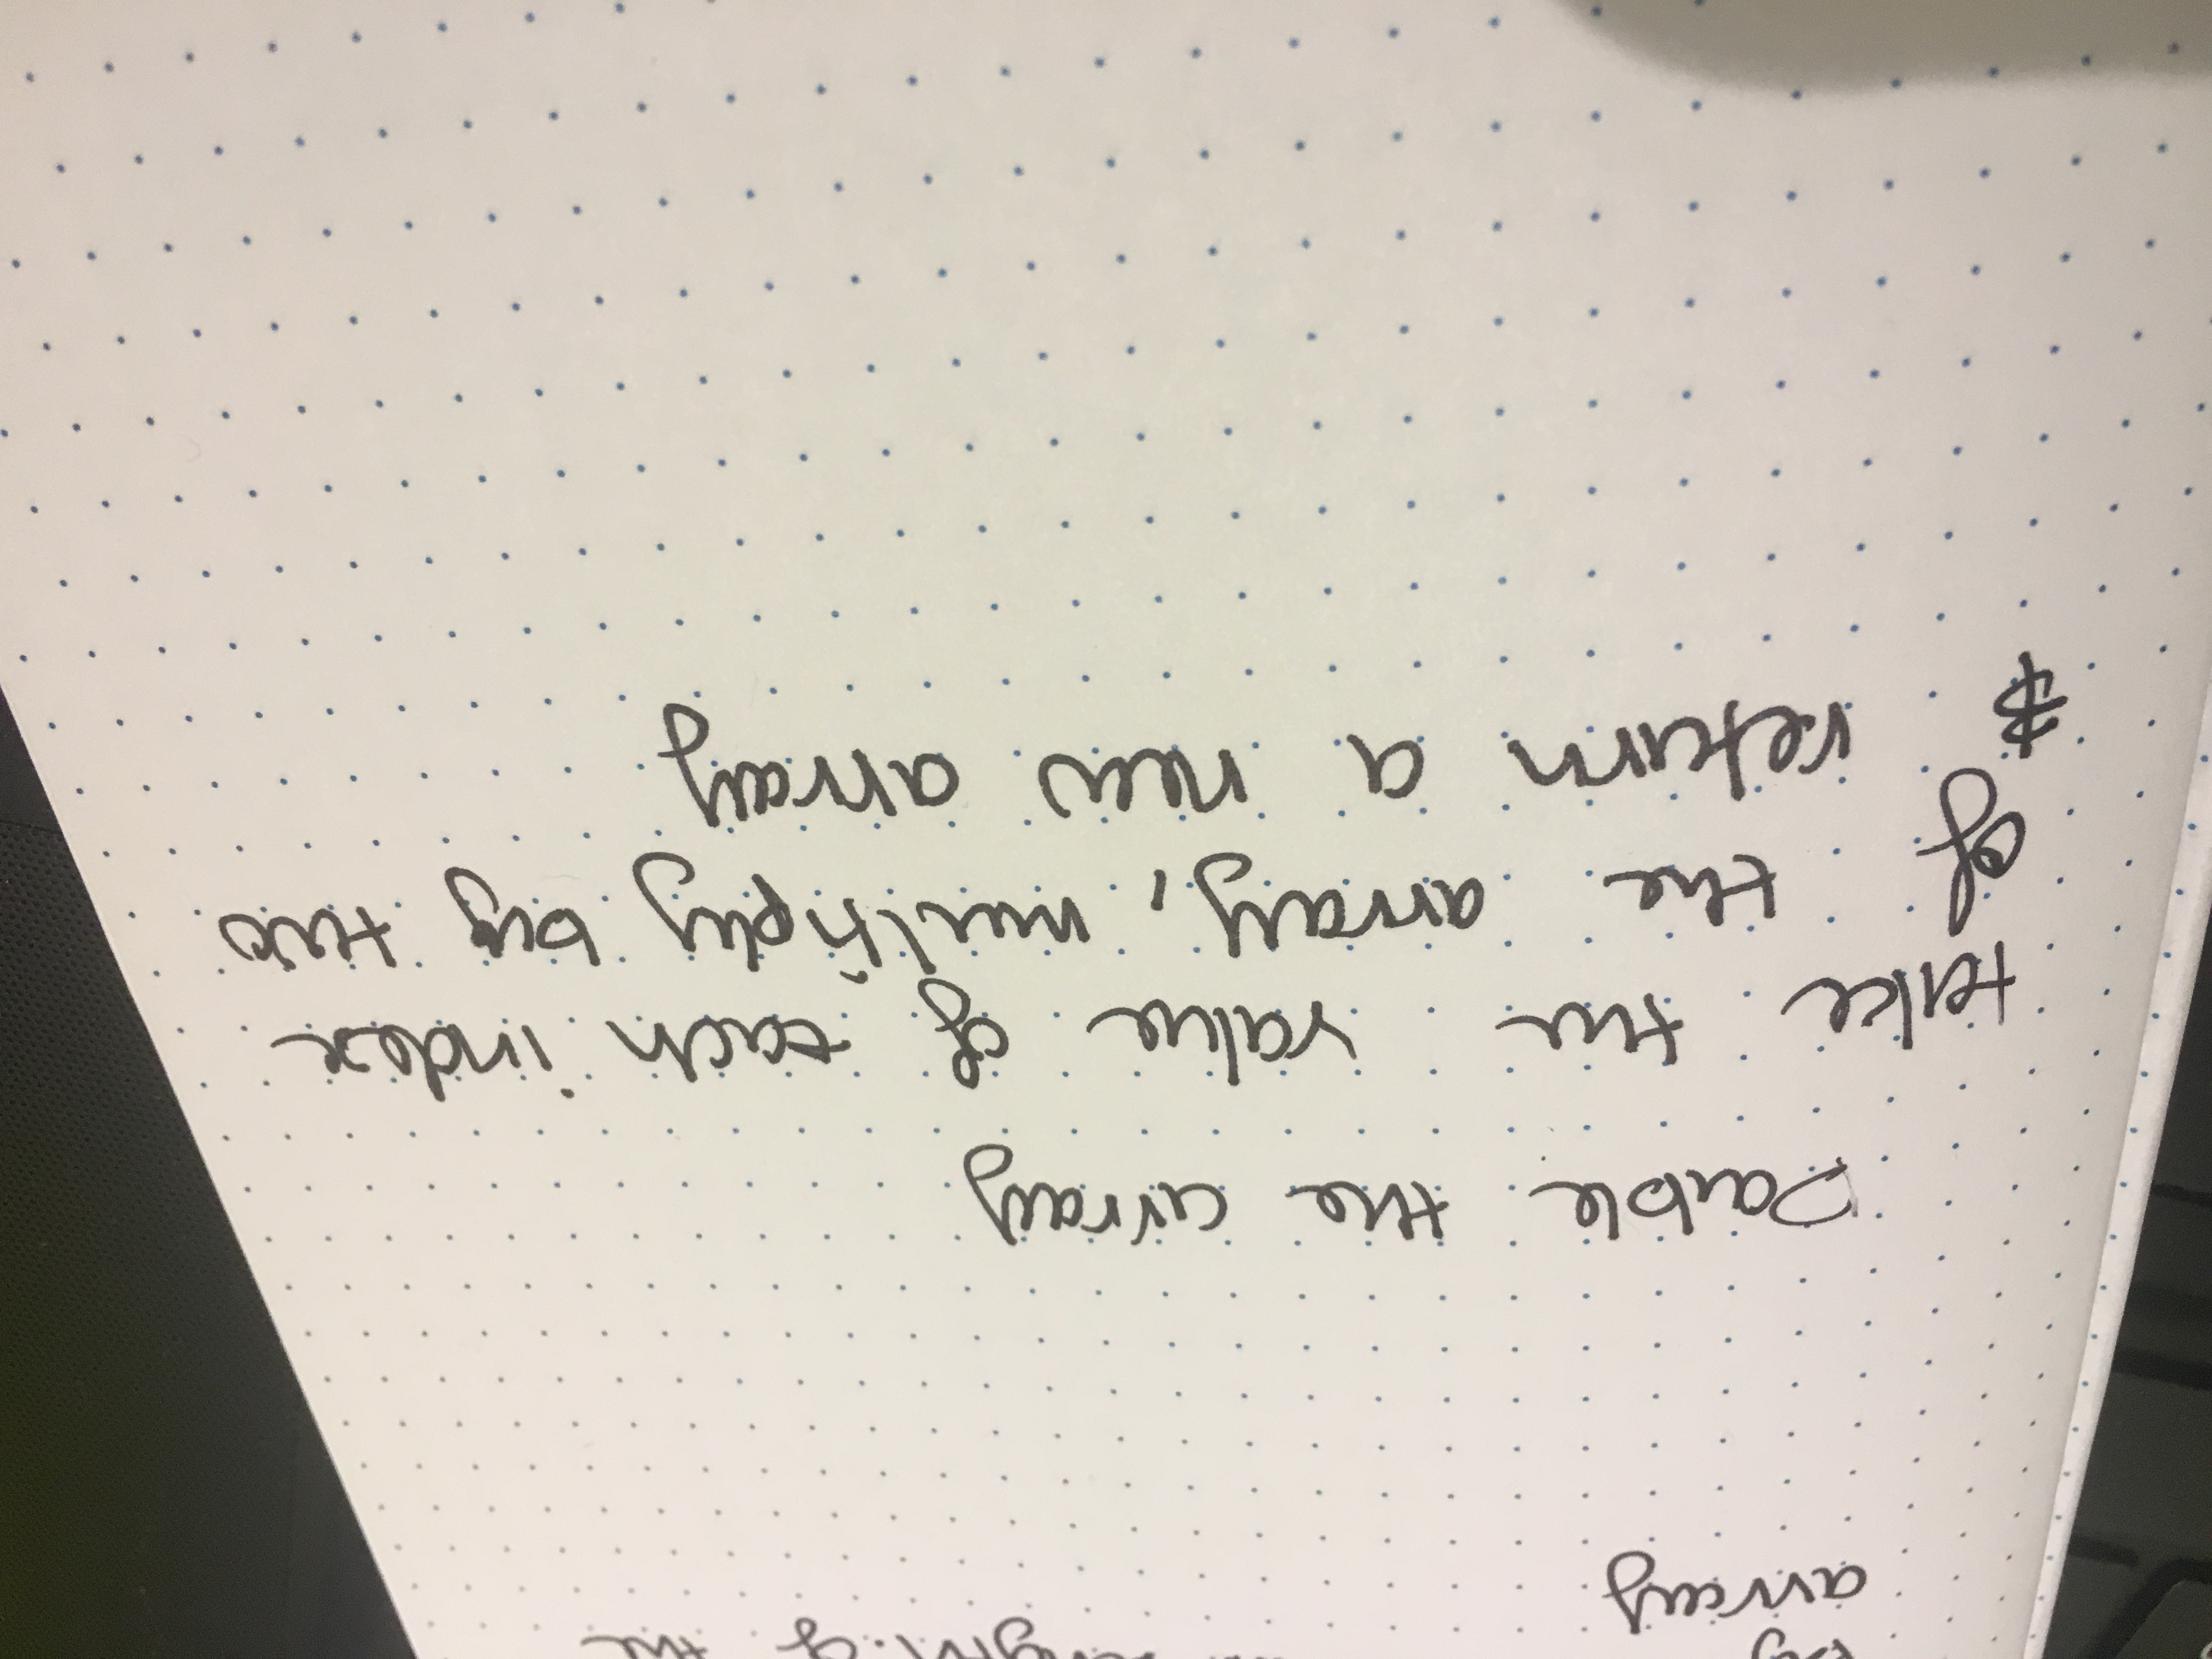 length of the
array
Double the array
take the value of each index
of the array, multiply by two
& return a new array